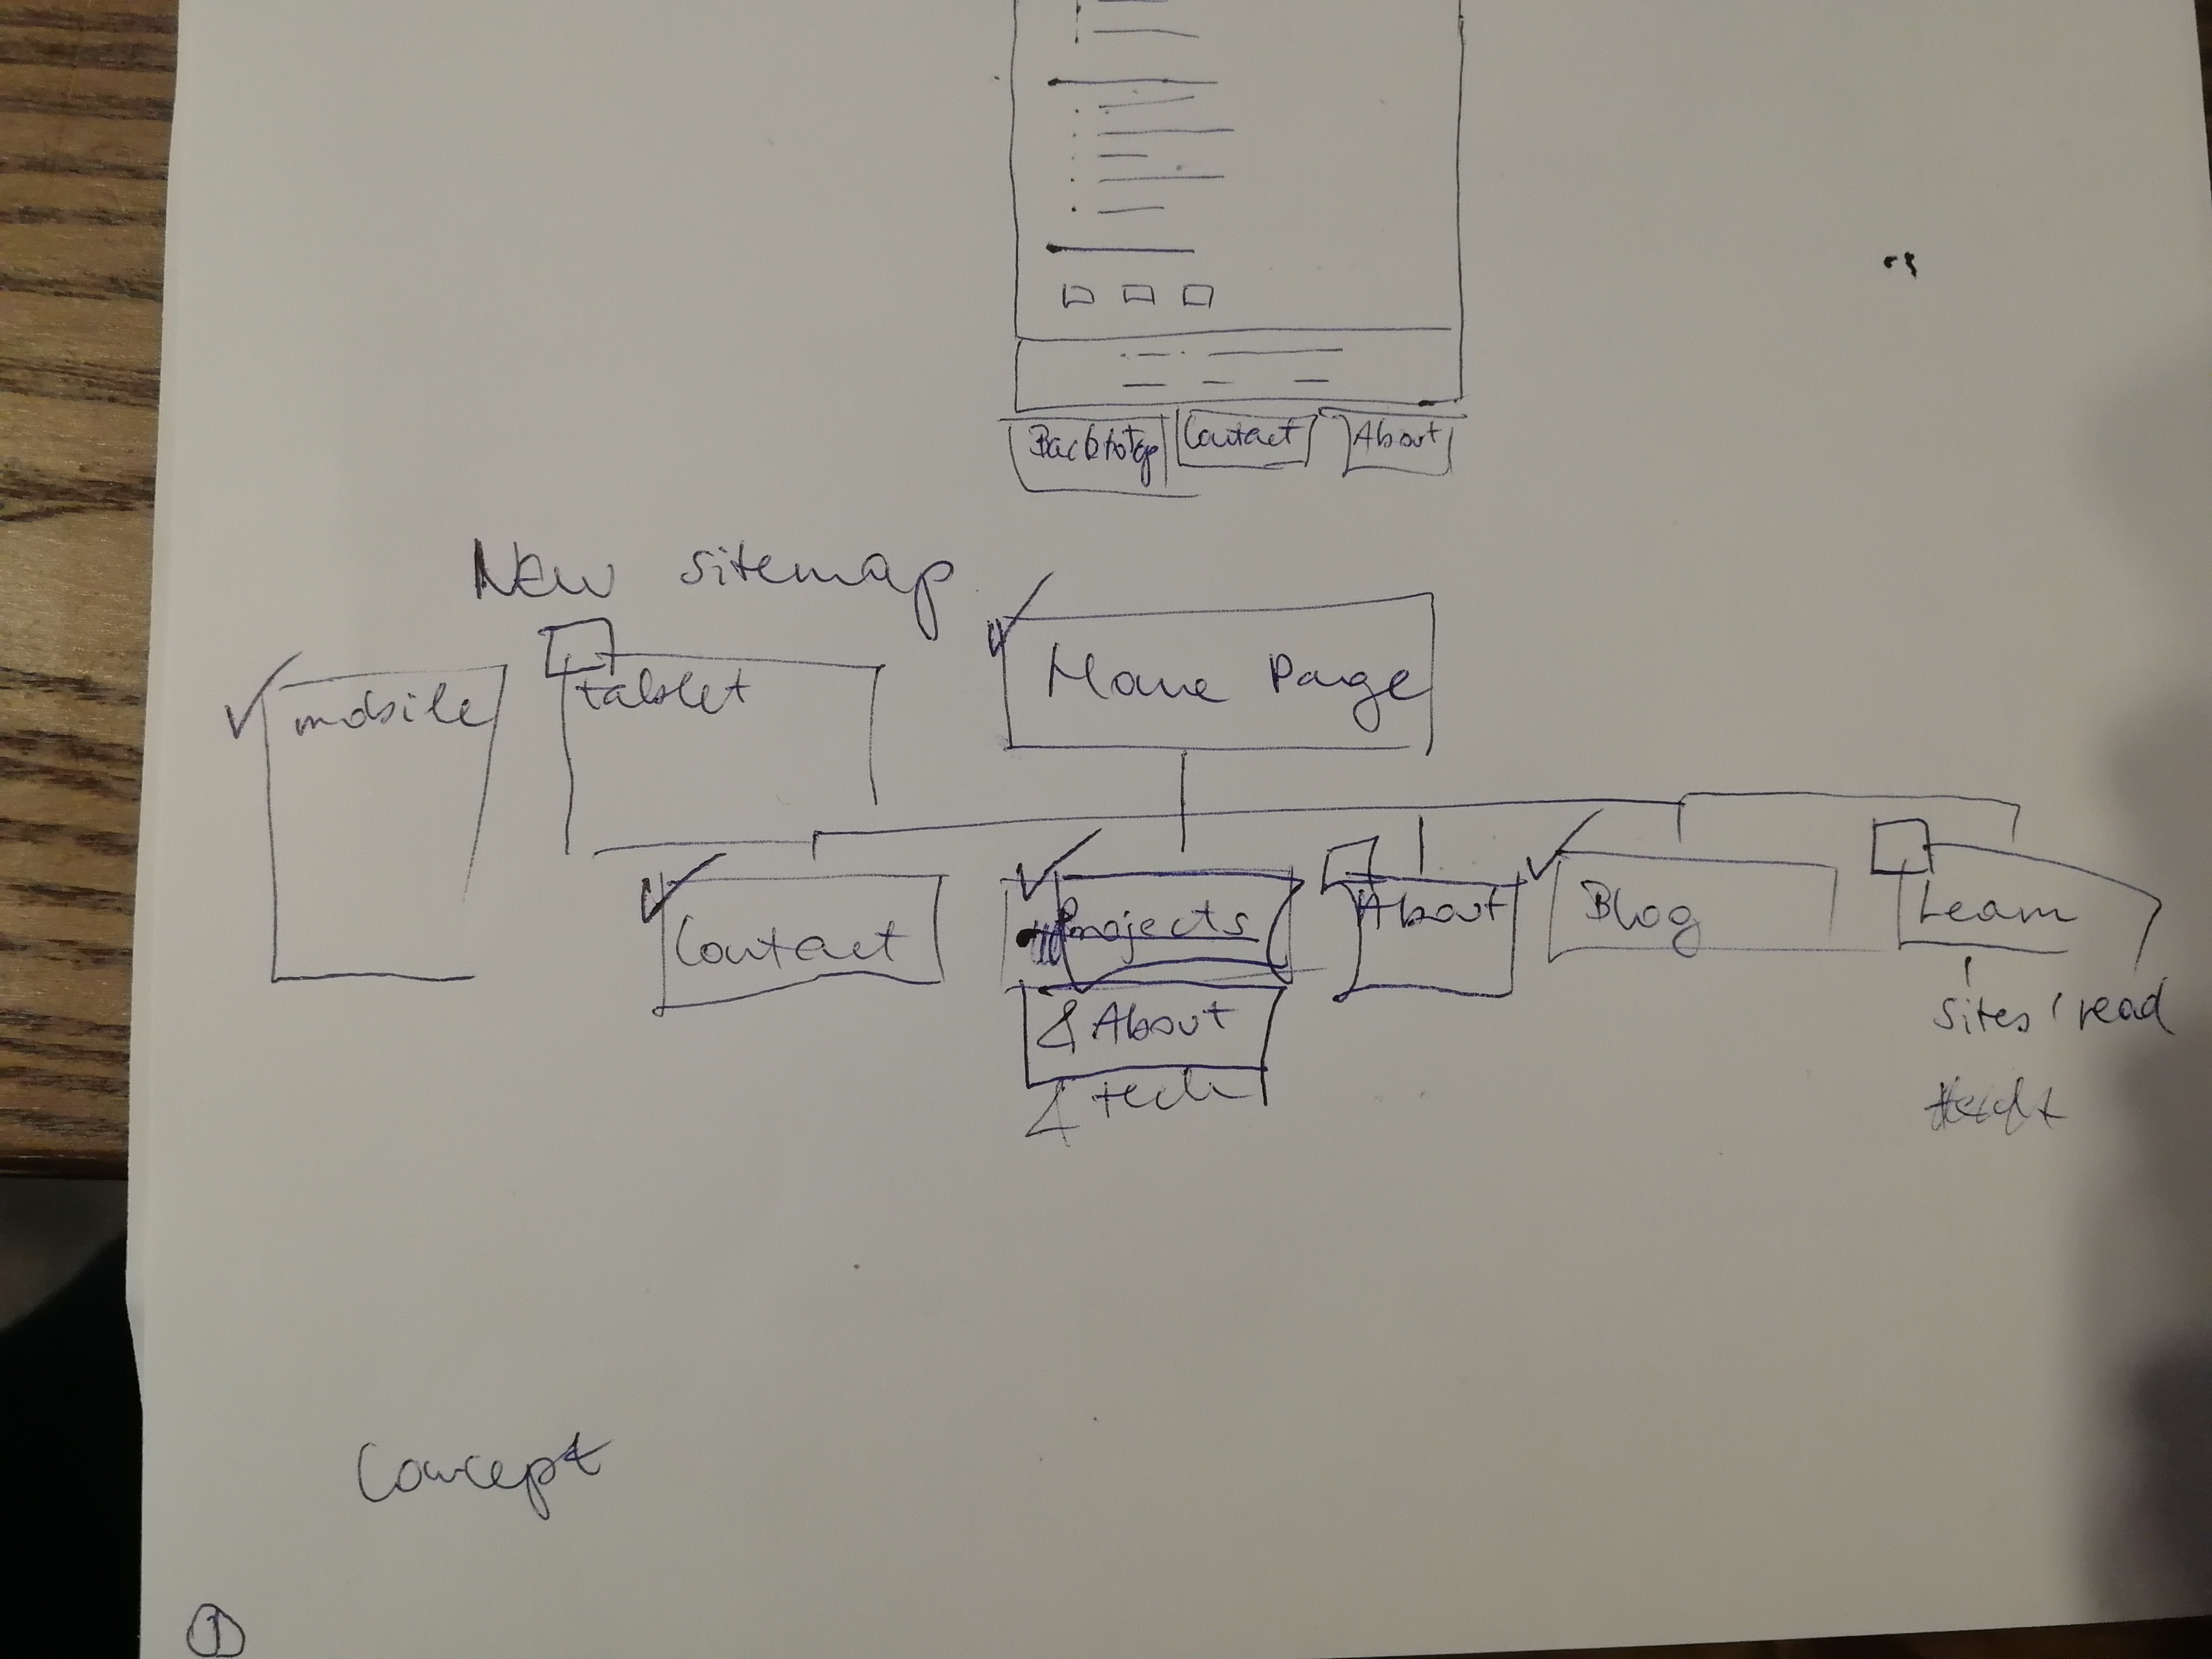 Back to top Contact About
New sitemap
mobile tablet Home Page
Contact Projects About Blog Learn
& About
& tech
sites / read
Concept
1